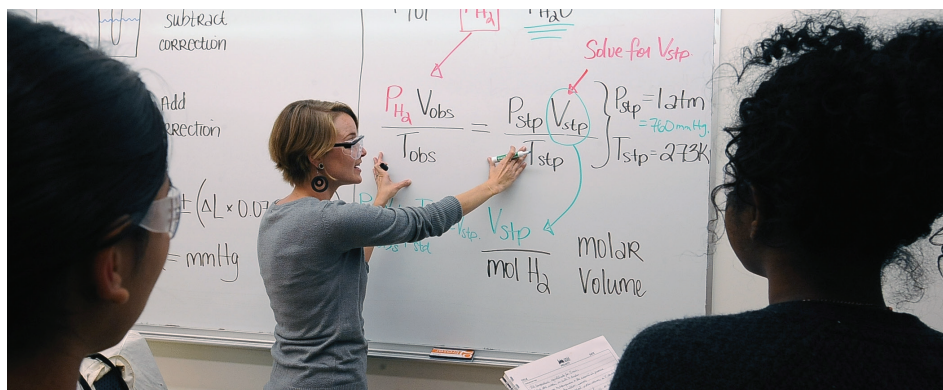 subtract
correction
Add
± (ΔL × 0.07
= mmHg
P H₂
P H₂O
Solve for Vstp
P H₂ Vobs
Tobs
=
Pstp Vstp
Tstp
Pstp = 1 atm
= 760 mmHg.
Tstp = 273K
Vstp
mol H₂
molar
Volume